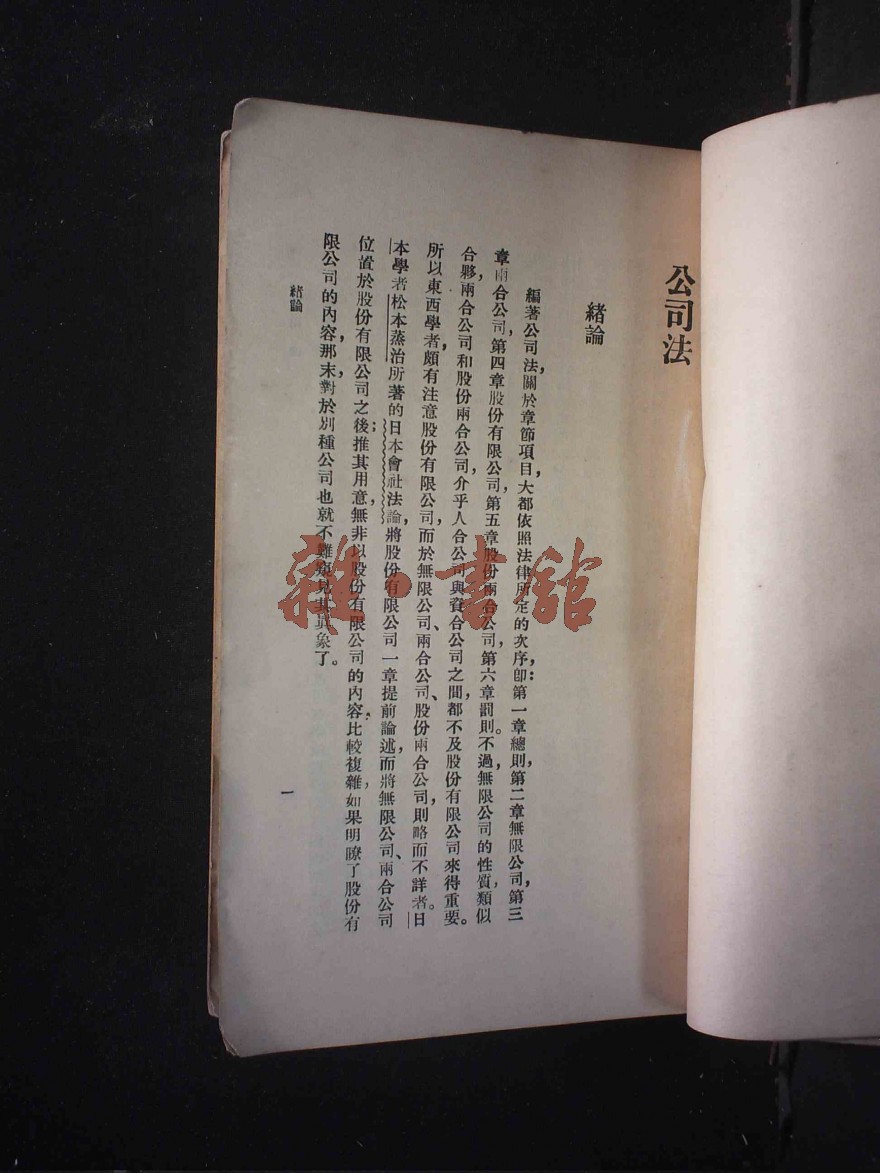 公司法
緒論
編著公司法，關於章節項目，大都依照法律所定的次序，卽：第一章總則，第二章無限公司，第三
章兩合公司，第四章股份有限公司，第五章股份兩合公司，第六章罰則。不過無限公司的性質，類似
合夥，兩合公司和股份兩合公司，介乎人合公司與資合公司之間，都不及股份有限公司來得重要。
所以東西學者，頗有注意股份有限公司，而於無限公司、兩合公司、股份兩合公司，則略而不詳者。日
本學者松本蒸治所著的日本會社法論，將股份有限公司一章提前論述，而將無限公司、兩合公司
位置於股份有限公司之後；推其用意，無非以股份有限公司的內容比較複雜，如果明瞭了股份有
限公司的內容，那末對於別種公司也就不難窺見其眞象了。
緒論
一
雜·書館